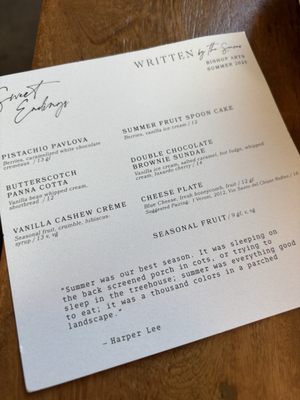 Sweet
Endings
WRITTEN by the Seasons
BISHOP ARTS
SUMMER 2020
PISTACHIO PAVLOVA
Berries, caramelized white chocolate
cremeux / 13 gf
BUTTERSCOTCH
PANNA COTTA
Vanilla bean whipped cream,
shortbread / 12
VANILLA CASHEW CRÈME
Seasonal fruit, crumble, hibiscus
syrup / 13 v, vg
SUMMER FRUIT SPOON CAKE
Berries, vanilla ice cream / 12
DOUBLE CHOCOLATE
BROWNIE SUNDAE
Vanilla ice cream, salted caramel, hot fudge, whipped
cream, luxardo cherry / 14
CHEESE PLATE
Blue Cheese, fresh honeycomb, fruit / 12 gf
Suggested Pairing: I Veroni, 2012, Vin Santo del Chianti Rufina / 16
SEASONAL FRUIT / 9 gf, v, vg
"Summer was our best season. It was sleeping on
the back screened porch in cots, or trying to
sleep in the treehouse; summer was everything good
to eat; it was a thousand colors in a parched
landscape."
– Harper Lee